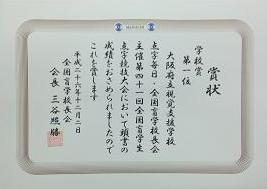 賞状
学校賞
第一位
大阪府立視覚支援学校
点字毎日・全国盲学校長会
主催第四十一回全国盲学生
点字競技大会において頭書の
成績をおさめられましたので
これを賞します
平成二十六年十二月二日
全国盲学校長会
会長 三谷照勝